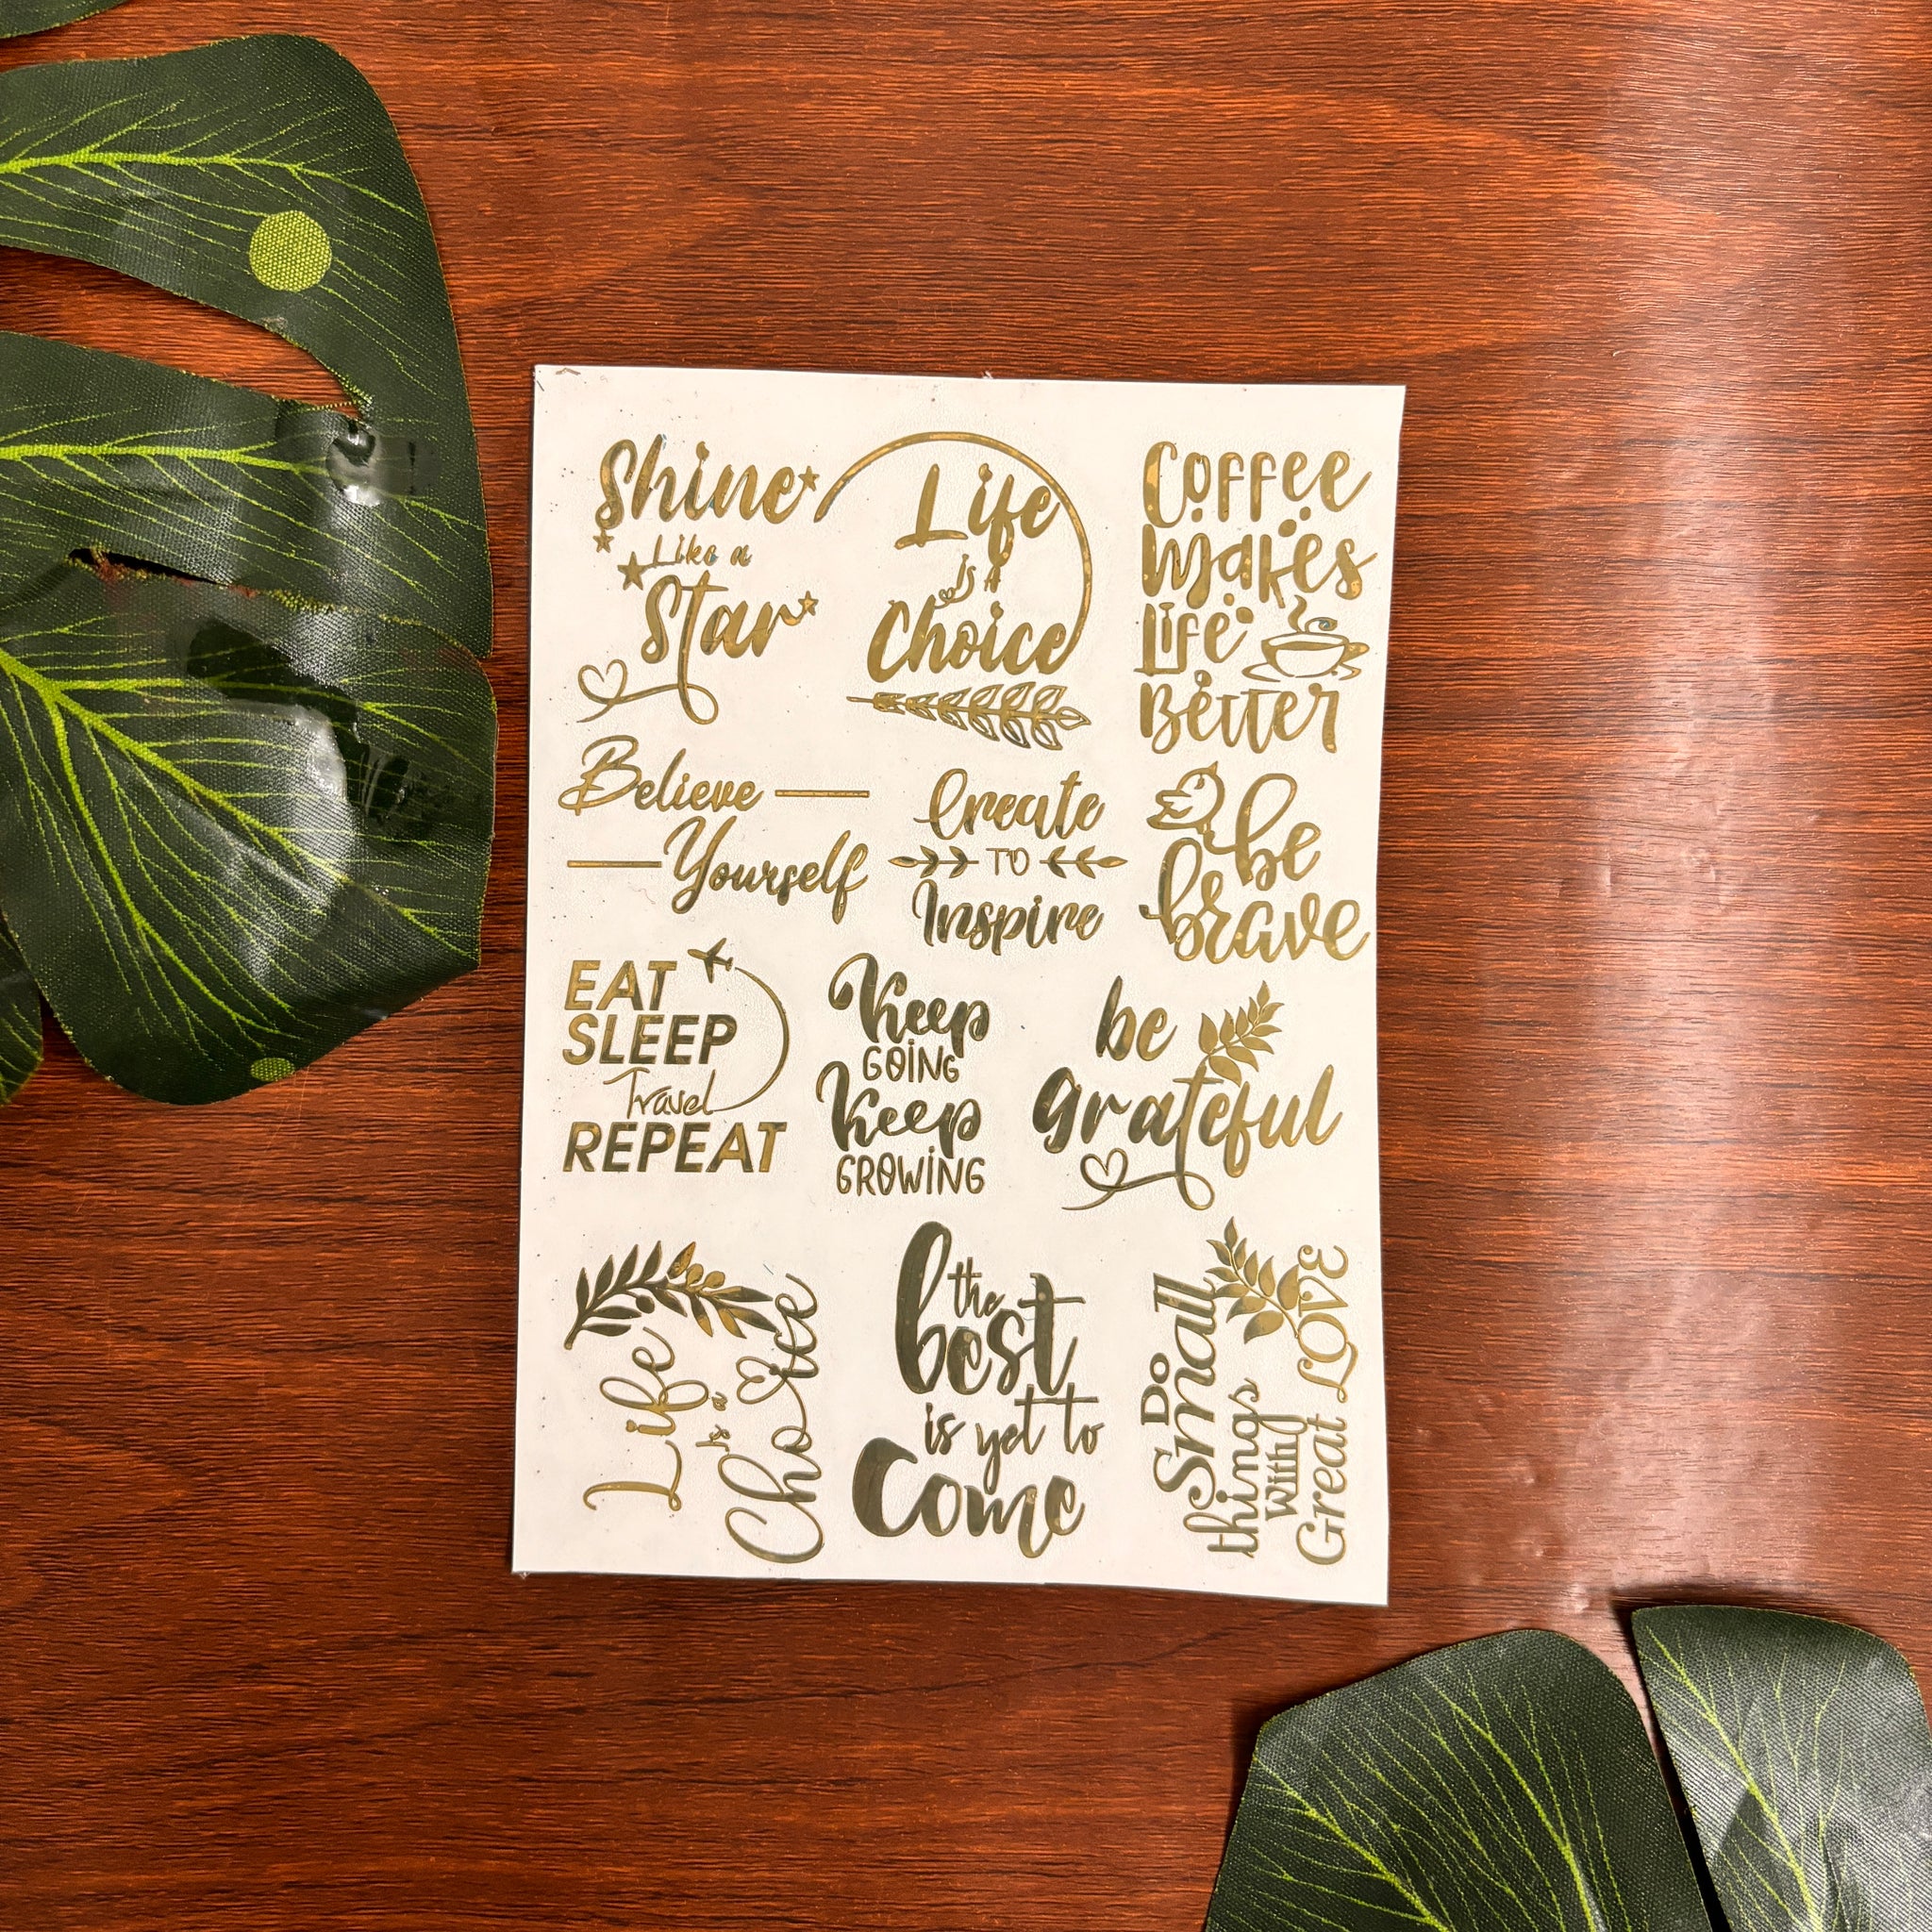 Shine
Like a
Star
Life
is A
Choice
Coffee
Makes
Life
Better
Believe
Yourself
Create
TO
Inspire
be
brave
EAT
SLEEP
Travel
REPEAT
Keep
GOING
Keep
GROWING
be
grateful
Life
is a
Choice
the
best
is yet to
Come
Do
Small
things
With
Great LOVE